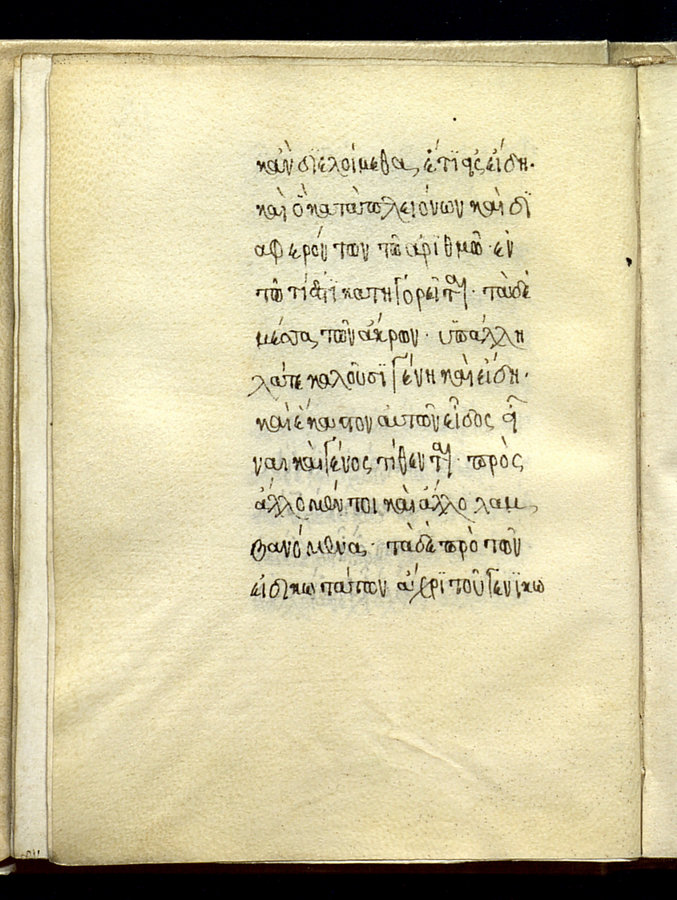 κἂν διελοίμεθα, ἔτι ϊς εἴδη·
καὶ ὃ κατὰ πλειόνων καὶ δϊ
αφερόντων τῶ ἀρϊθμῶ· ἐν
τῶ τί ἐστι κατηγορεῖται· τὰ δὲ
μέσα τῶν ἄκρων· ϋπάλλη
λά τε καλοῦσϊ γένη καὶ εἴδη·
καὶ ἕκαστον αὐτῶν εἶδος εἶ
ναι καὶ γένος τίθενται· πρὸς
ἄλλο μέν τοι καὶ ἄλλο λαμ
βανόμενα· τὰ δὲ πρὸ τῶν
εἰδικωτάτων ἄχρϊ τοῦ γενϊκω